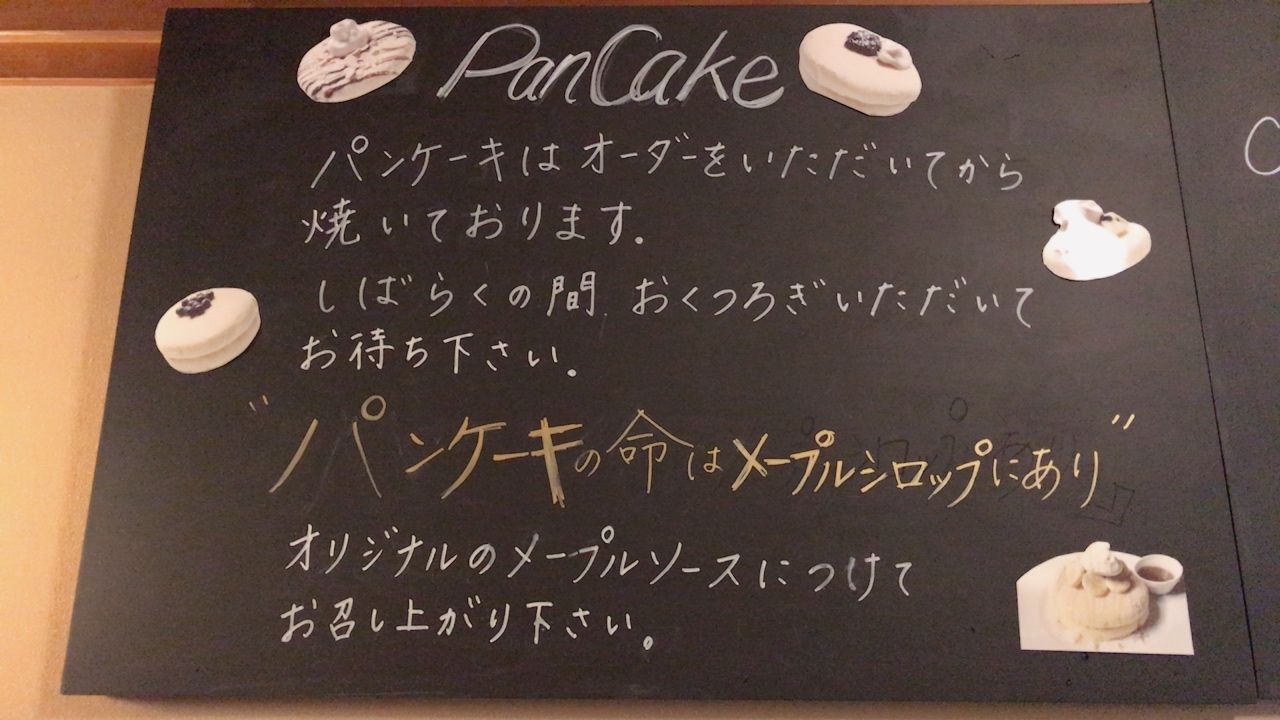 PanCake
パンケーキはオーダーをいただいてから
焼いております。
しばらくの間 おくつろぎいただいて
お待ち下さい。
"パンケーキの命はメープルシロップにあり"
オリジナルのメープルソースにつけて
お召し上がり下さい。